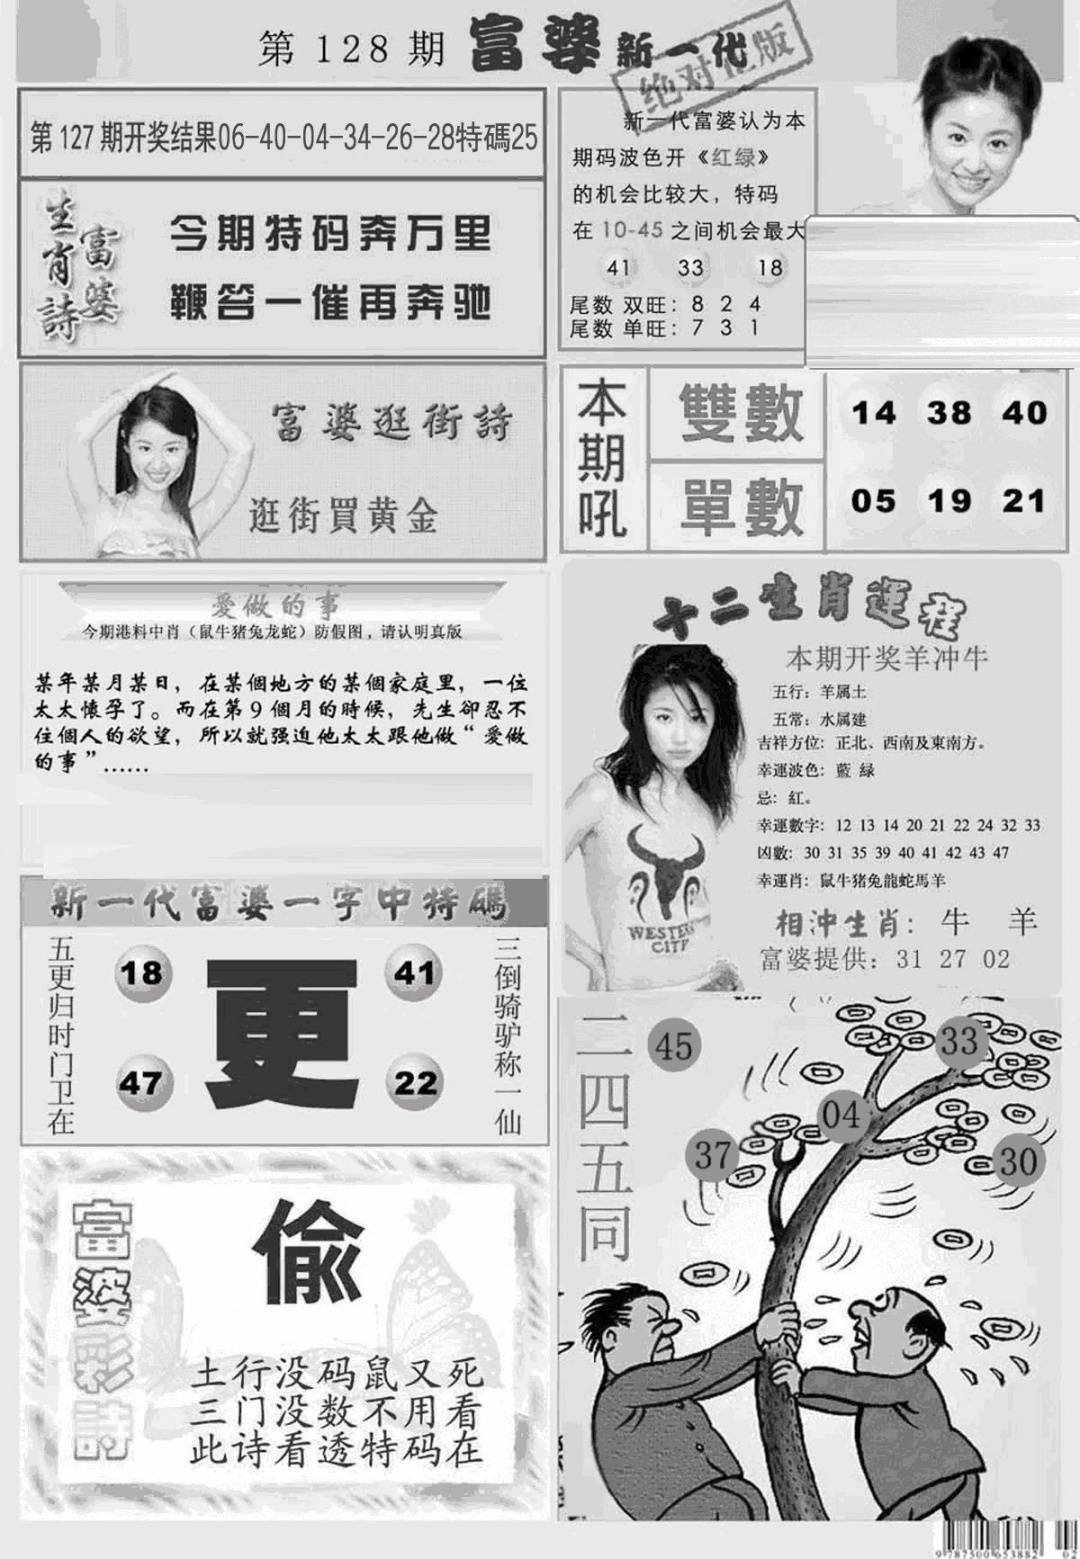 第128期 富婆 新一代
绝对正版
第127期开奖结果06-40-04-34-26-28特碼25
富婆生肖詩
今期特码奔万里
鞭笞一催再奔驰
新一代富婆认为本
期码波色开《红绿》
的机会比较大，特码
在10-45之间机会最大
41 33 18
尾数 双旺：8 2 4
尾数 单旺：7 3 1
富婆逛街詩
逛街買黄金
本期吼
雙數
14 38 40
單數
05 19 21
愛做的事
今期港料中肖（鼠牛猪兔龙蛇）防假图，请认明真版
某年某月某日，在某個地方的某個家庭里，一位
太太懷孕了。而在第9個月的時候，先生卻忍不
住個人的欲望，所以就强迫他太太跟他做“愛做
的事”……
十二生肖運程
本期开奖羊冲牛
五行：羊属土
五常：水属建
吉祥方位：正北、西南及東南方。
幸運波色：藍 緑
忌：紅。
幸運數字：12 13 14 20 21 22 24 32 33
凶數：30 31 35 39 40 41 42 43 47
幸運肖：鼠牛猪兔龍蛇馬羊
相沖生肖：牛 羊
富婆提供：31 27 02
WESTERN
CITY
新一代富婆一字中特碼
五更归时门卫在
18 41
更
47 22
三倒骑驴称一仙
二四五同
45
33
04
37
30
富婆彩詩
偷
土行没码鼠又死
三门没数不用看
此诗看透特码在
9787500653882
02